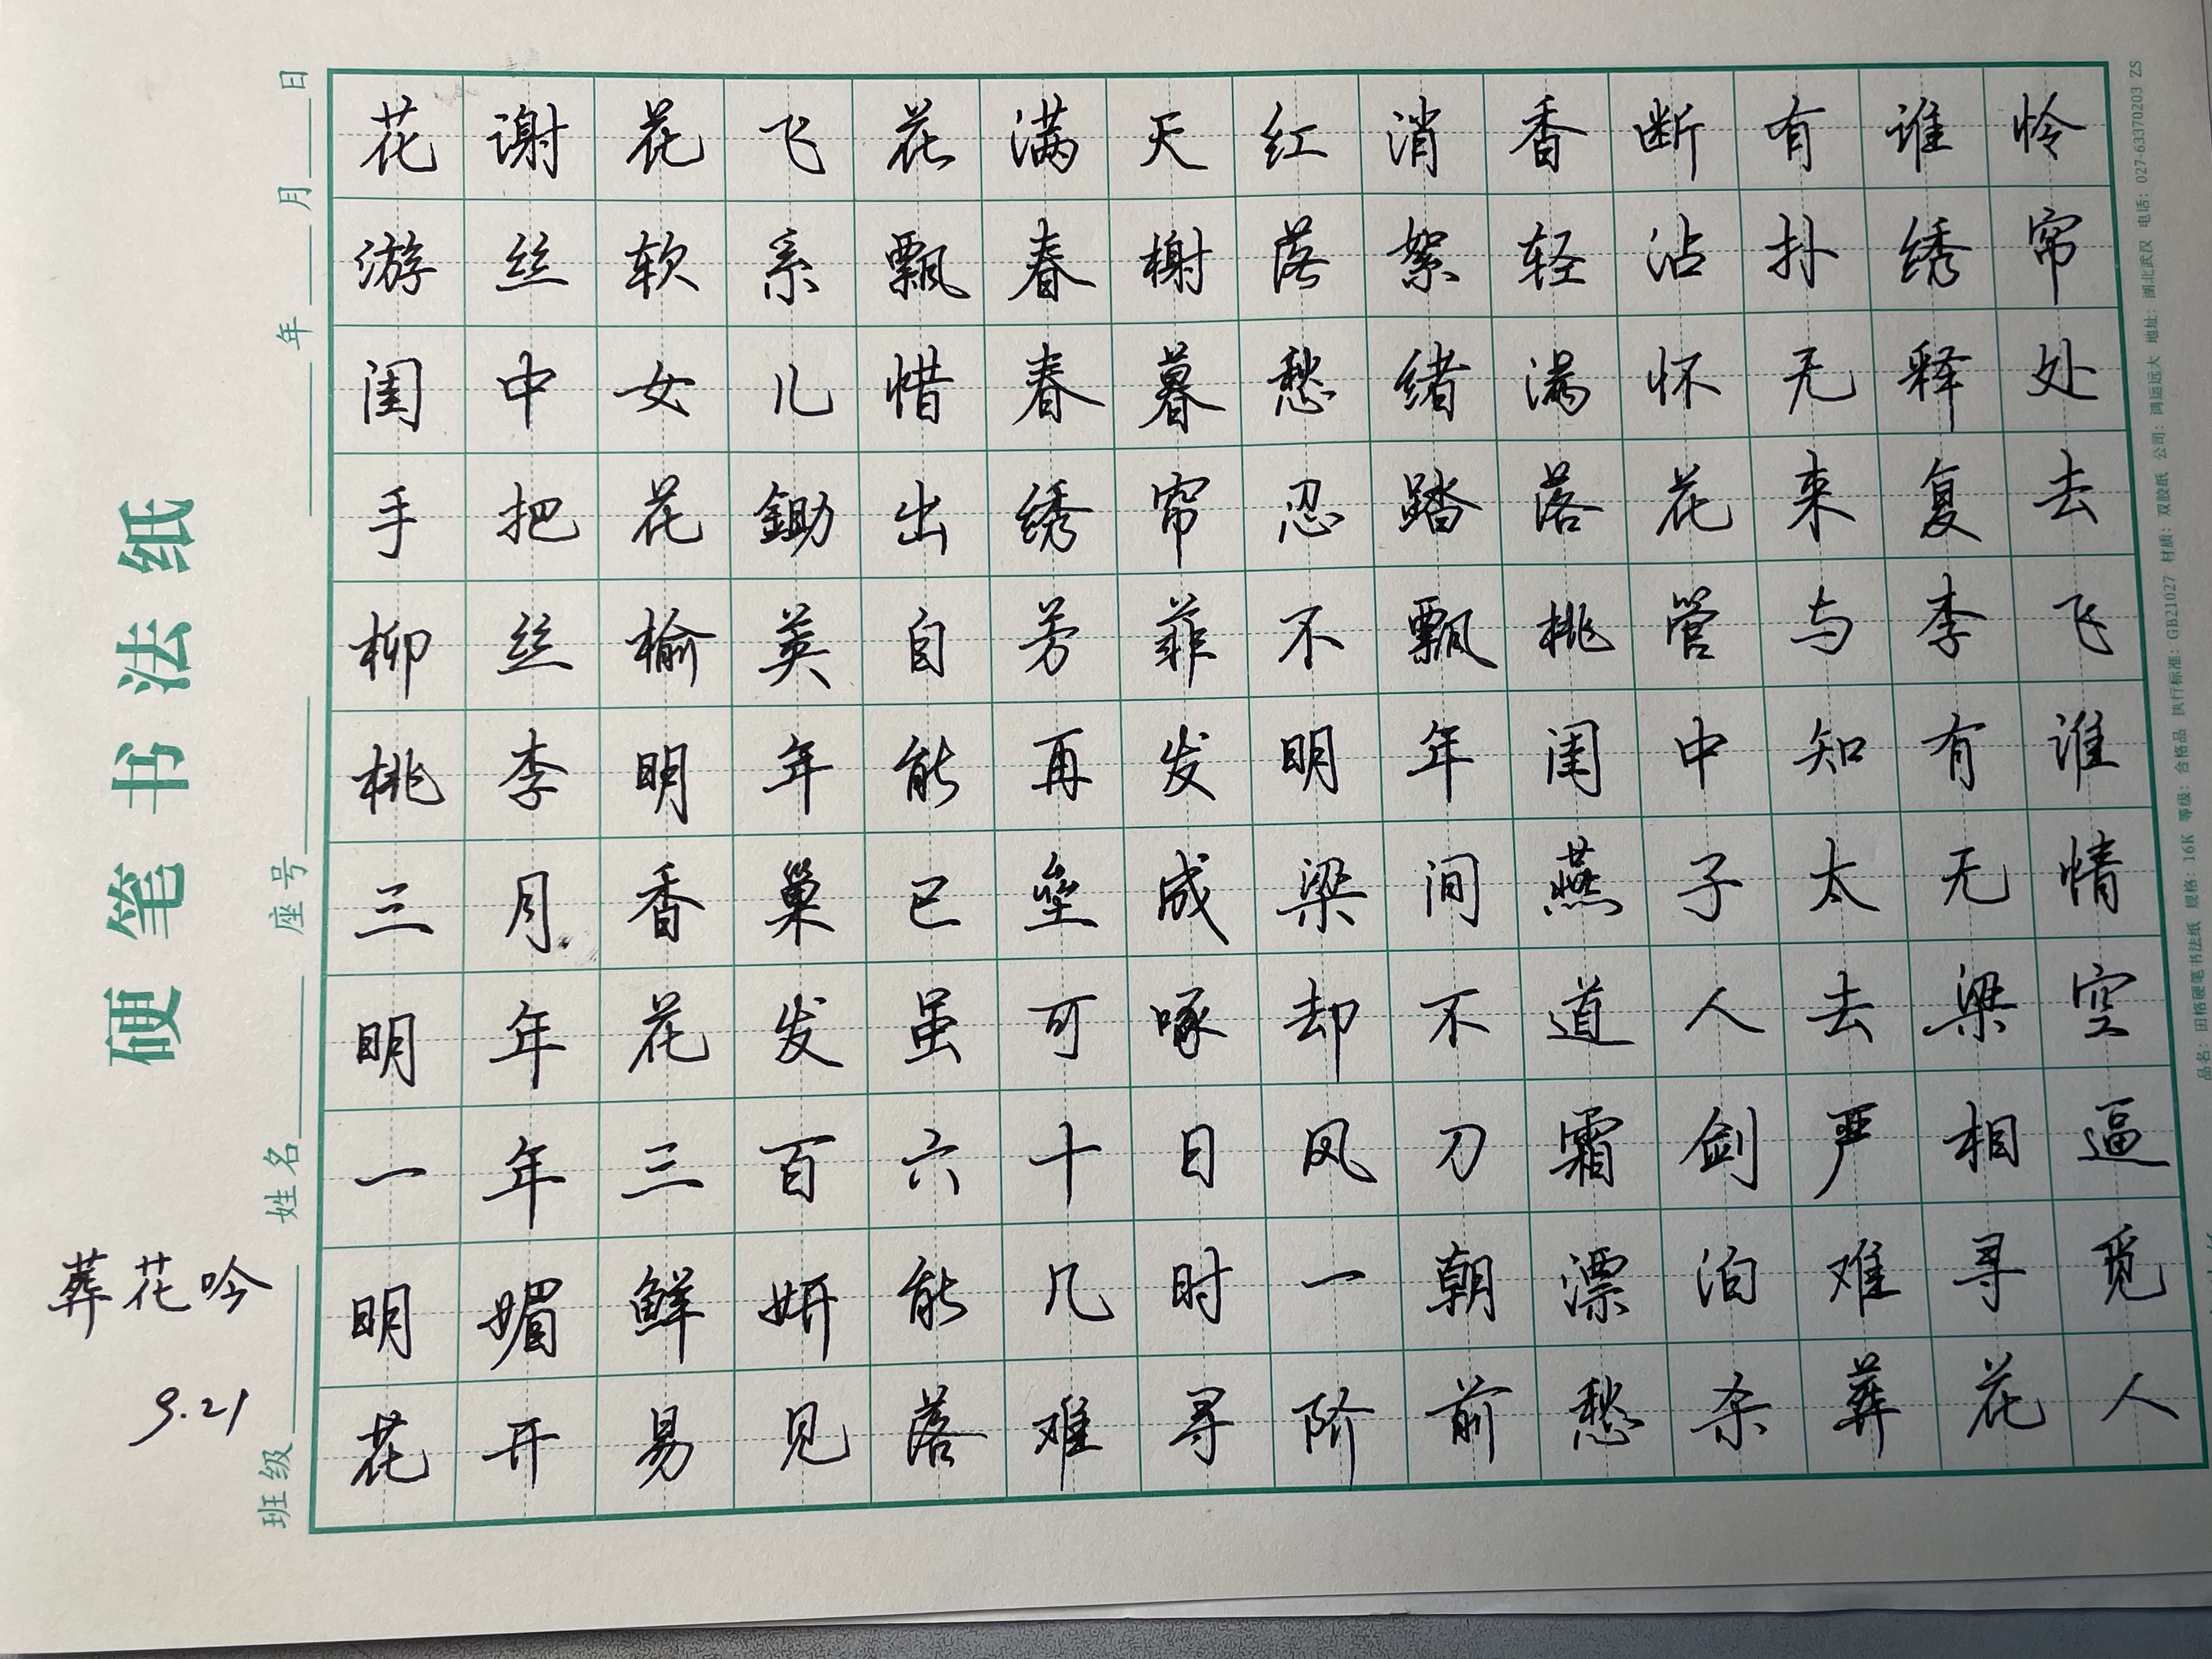 硬笔书法纸
葬花吟
9.21
班级 姓名 座号 年 月 日
花谢花飞花满天红消香断有谁怜
游丝软系飘春榭落絮轻沾扑绣帘
闺中女儿惜春暮愁绪满怀无释处
手把花锄出绣帘忍踏落花来复去
柳丝榆荚自芳菲不飘桃管与李飞
桃李明年能再发明年闺中知有谁
三月香巢已垒成梁间燕子太无情
明年花发虽可啄却不道人去梁空
一年三百六十日风刀霜剑严相逼
明媚鲜妍能几时一朝漂泊难寻觅
花开易见落难寻阶前愁杀葬花人
品名：田格硬笔书法纸 规格：16K 等级：合格品 执行标准：GB21027 材质：双胶纸 公司：鸿运远大 地址：湖北武汉 电话：027-63370203 ZS